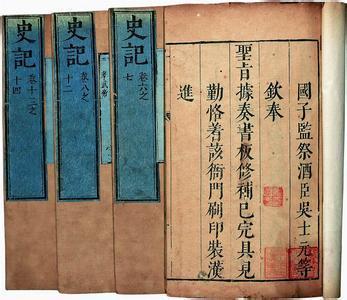 國子監祭酒臣吳士元等
欽奉
聖旨據奏書板修補已完具見
勤恪着該衙門刷印裝潢
進
史記
卷六之
七
史記
卷八之
十二
史記
卷十三之
十四
孝武帝